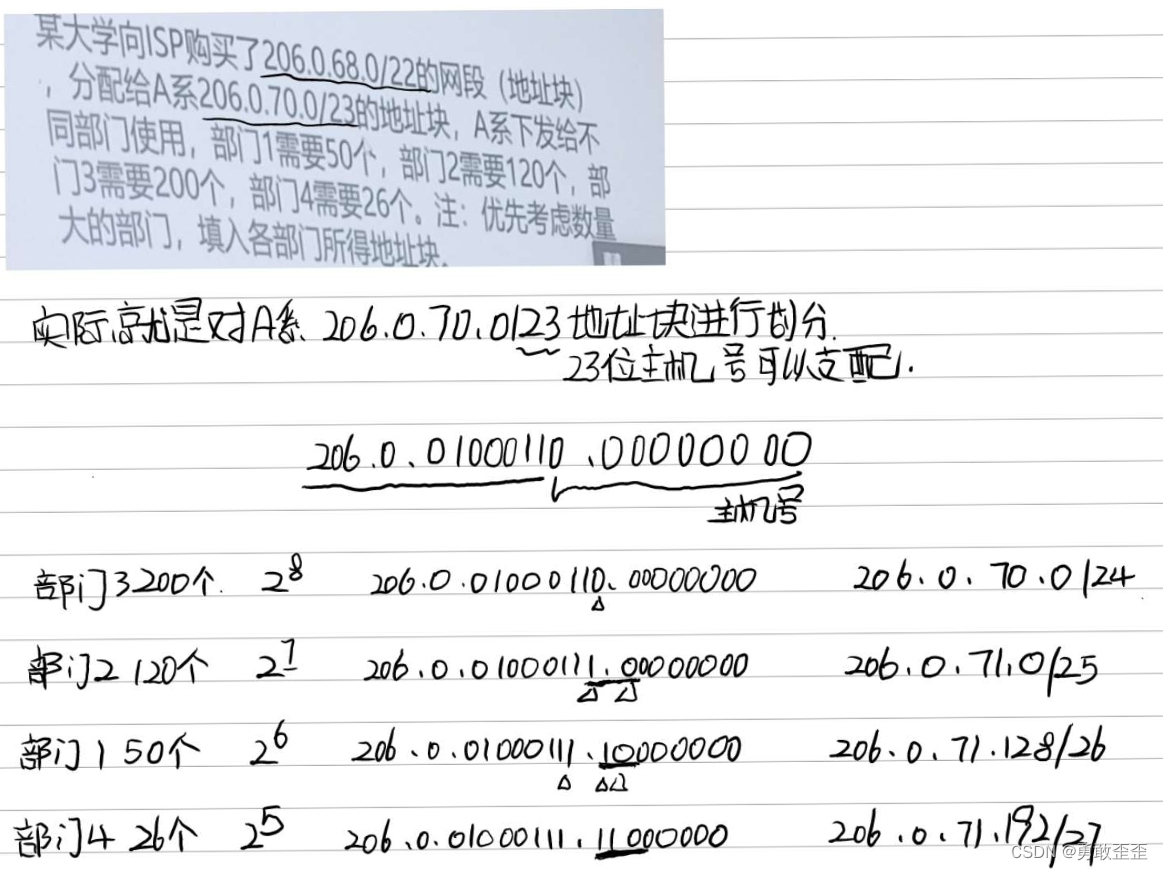 某大学向ISP购买了206.0.68.0/22的网段（地址块）
，分配给A系206.0.70.0/23的地址块，A系下发给不
同部门使用，部门1需要50个，部门2需要120个，部
门3需要200个，部门4需要26个。注：优先考虑数量
大的部门，填入各部门所得地址块.
实际就是对A系 206.0.70.0/23 地址块进行划分.
23位主机号可以支配.
206.0.01000110.00000000
主机号
部门3 200个. 2^8 206.0.01000110.00000000 206.0.70.0/24
部门2 120个 2^7 206.0.01000111.00000000 206.0.71.0/25
部门1 50个 2^6 206.0.01000111.10000000 206.0.71.128/26
部门4 26个 2^5 206.0.01000111.11000000 206.0.71.192/27
CSDN @勇敢歪歪